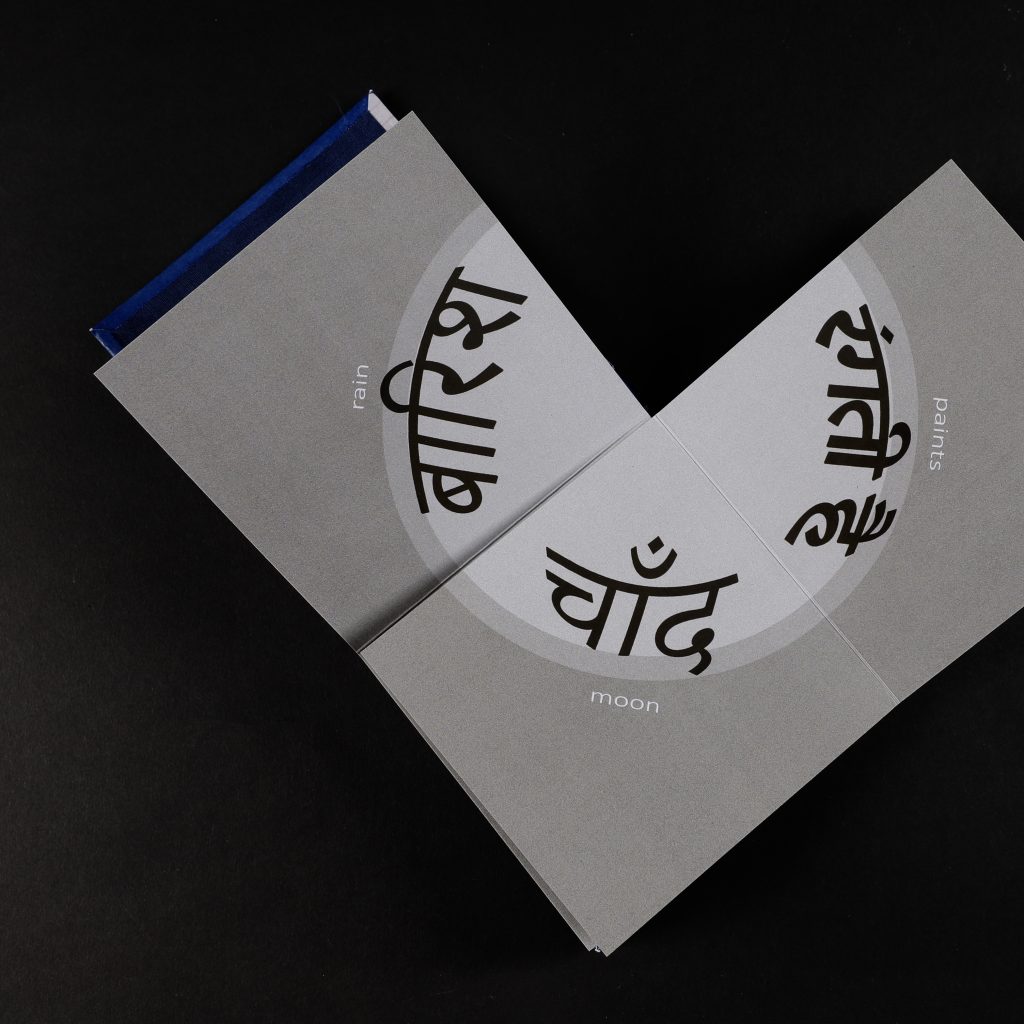 बारिश
rain
चाँद
moon
रंगती है
paints